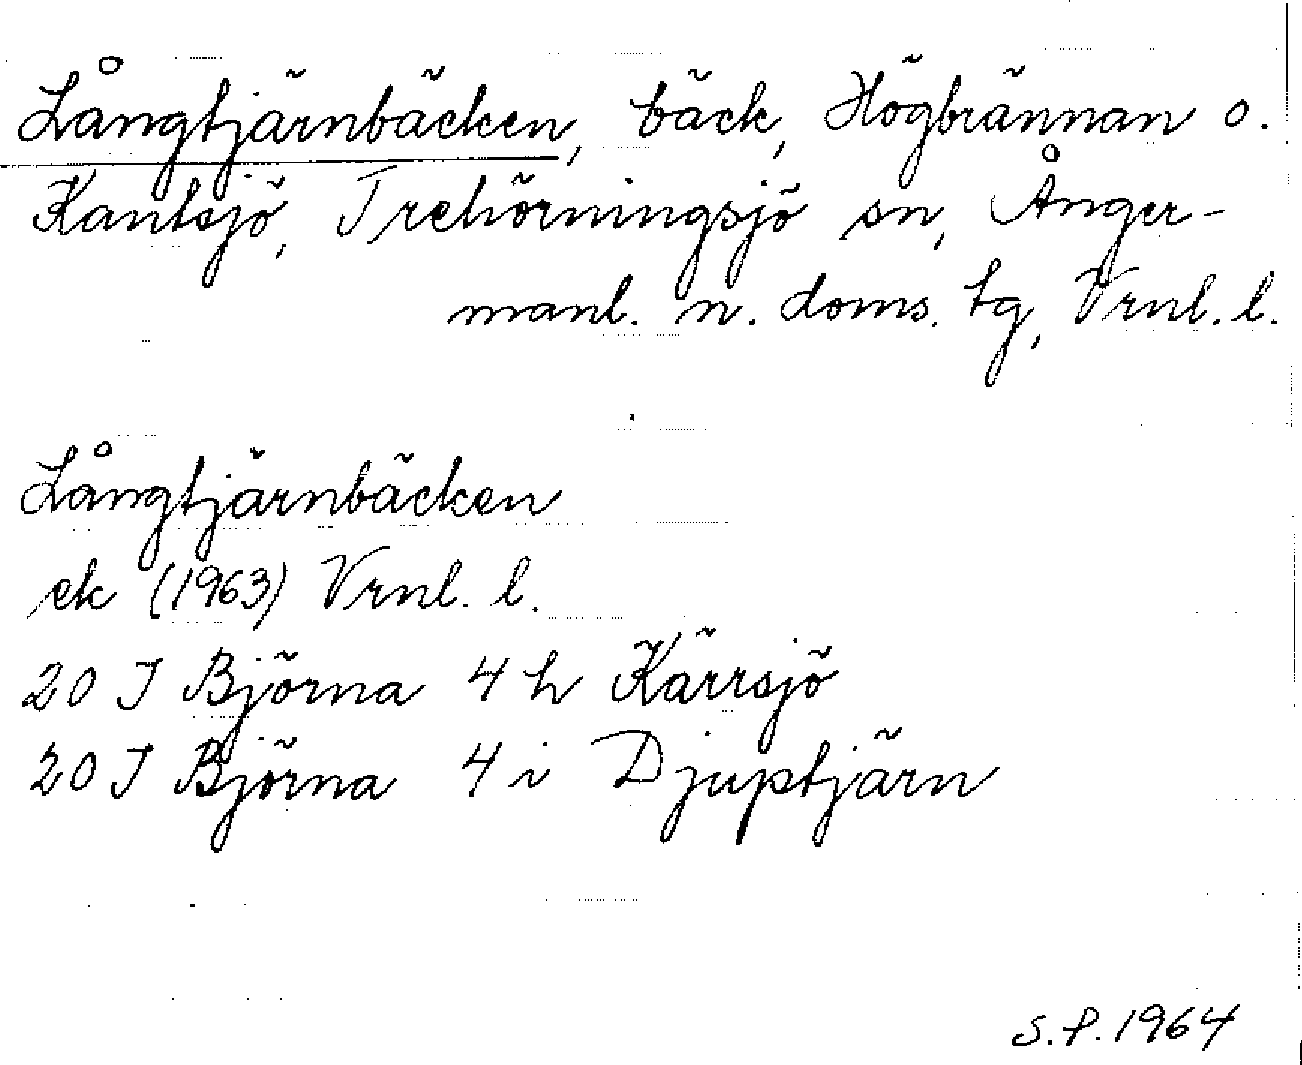 Långtjärnbäcken, bäck, Högbrännan o.
Kantsjö, Trehörningsjö sn, Ånger-
manl. n. doms. tg, Vrnl. l.
Långtjärnbäcken
ek (1963) Vrnl. l.
20 J Björna 4 h Kärrsjö
20 J Björna 4 i Djuptjärn
S.P. 1964